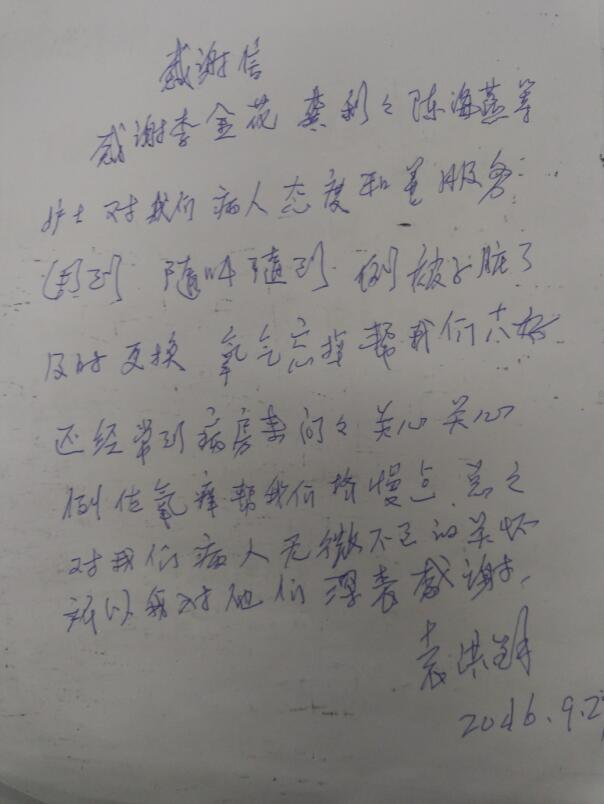 感谢信
感谢李金花 龚利々 陈海燕等
护士对我们病人态度和善服务
周到 随叫随到 例被子脏了
及时更换 氧气忘掉帮我们去好
还经常到病房来问々关心关心
例位氧痒帮我们搭慢点 总之
对我们病人无微不至的关怀
所以我对他们深表感谢
袁洪
2016.9.2